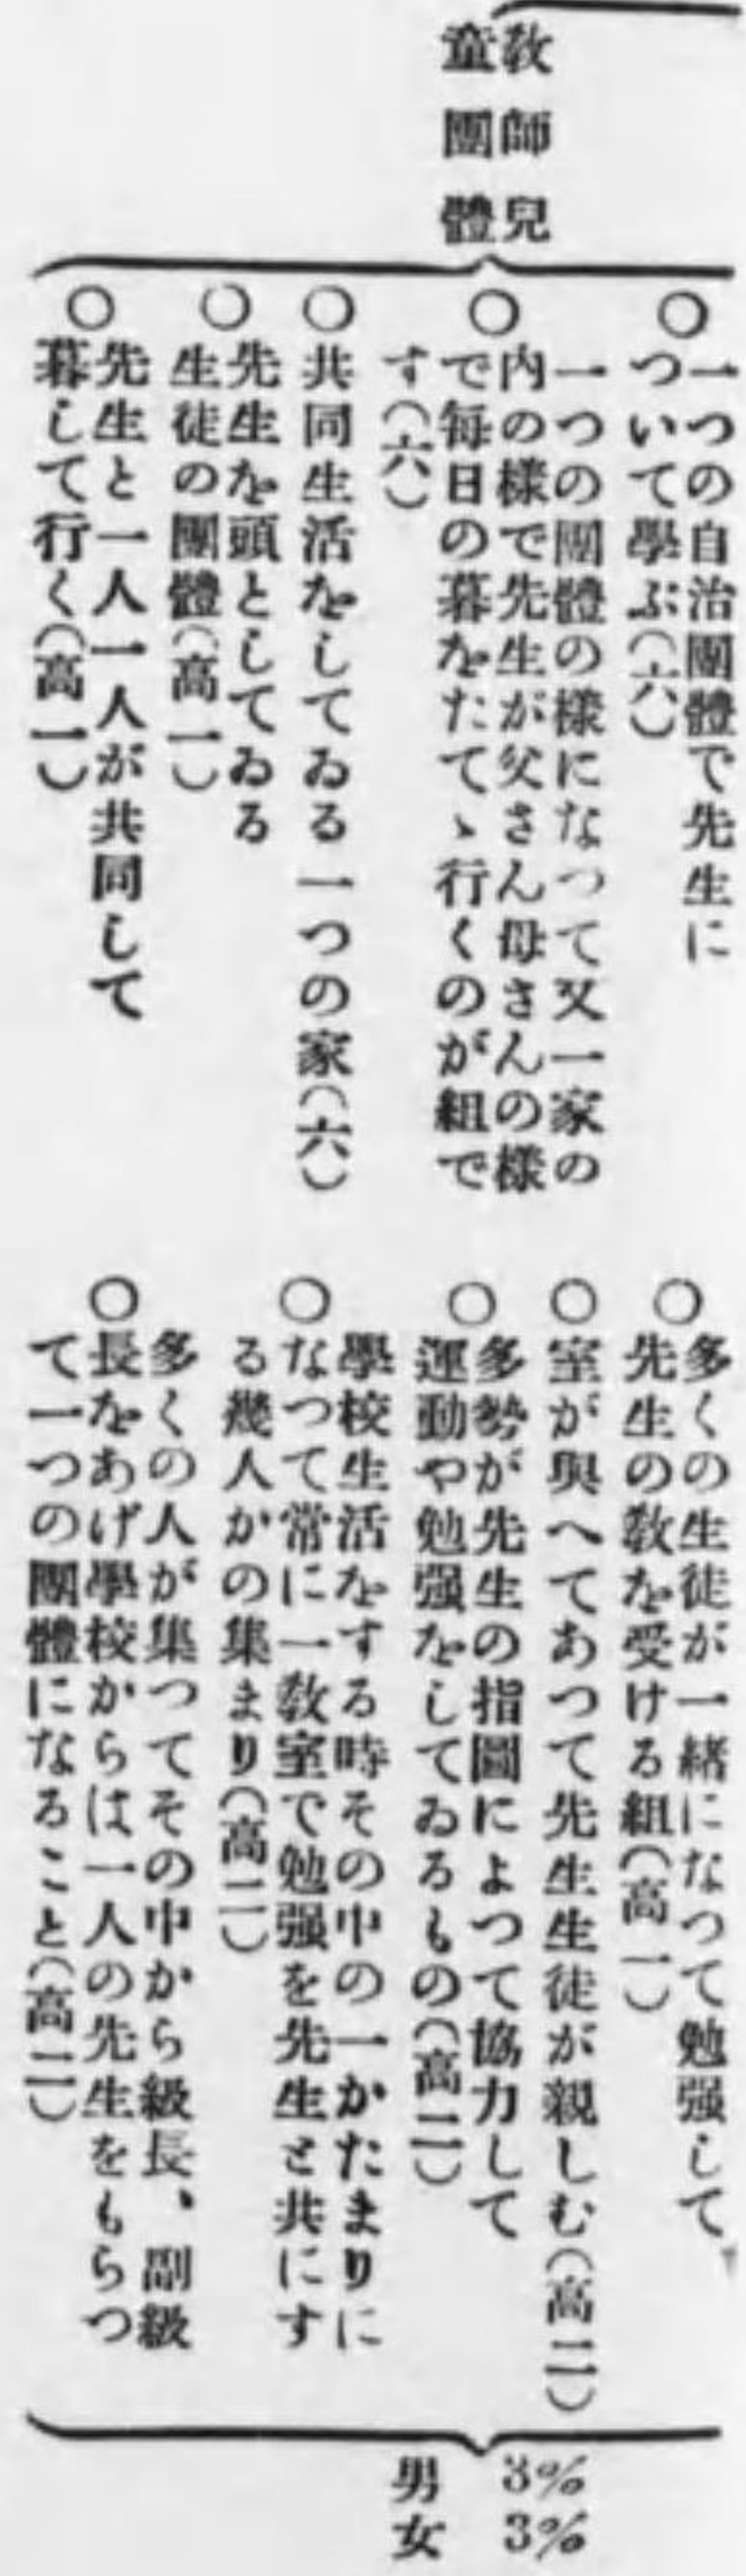 教師兒
童團體
○一つの自治團體で先生に
ついて學ぶ(六)
○一つの團體の樣になつて又一家の
内の樣で先生が父さん母さんの樣
で每日の暮をたてゝ行くのが組で
す(六)
○共同生活をしてゐる一つの家(六)
○先生を頭としてゐる
生徒の團體(高一)
○先生と一人一人が共同して
暮して行く(高一)
○多くの生徒が一緒になつて勉强して
先生の教を受ける組(高一)
○室が與へてあつて先生生徒が親しむ(高二)
○多勢が先生の指圖によつて協力して
運動や勉强をしてゐるもの(高二)
○學校生活をする時その中の一かたまりに
なつて常に一教室で勉强を先生と共にす
る幾人かの集まり(高二)
○多くの人が集つてその中から級長、副級
長をあげ學校からは一人の先生をもらつ
て一つの團體になること(高二)
男 3%
女 3%